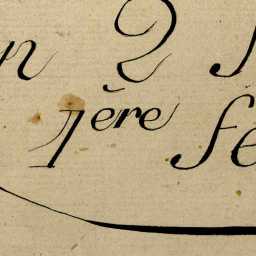 n 2
1ère fe